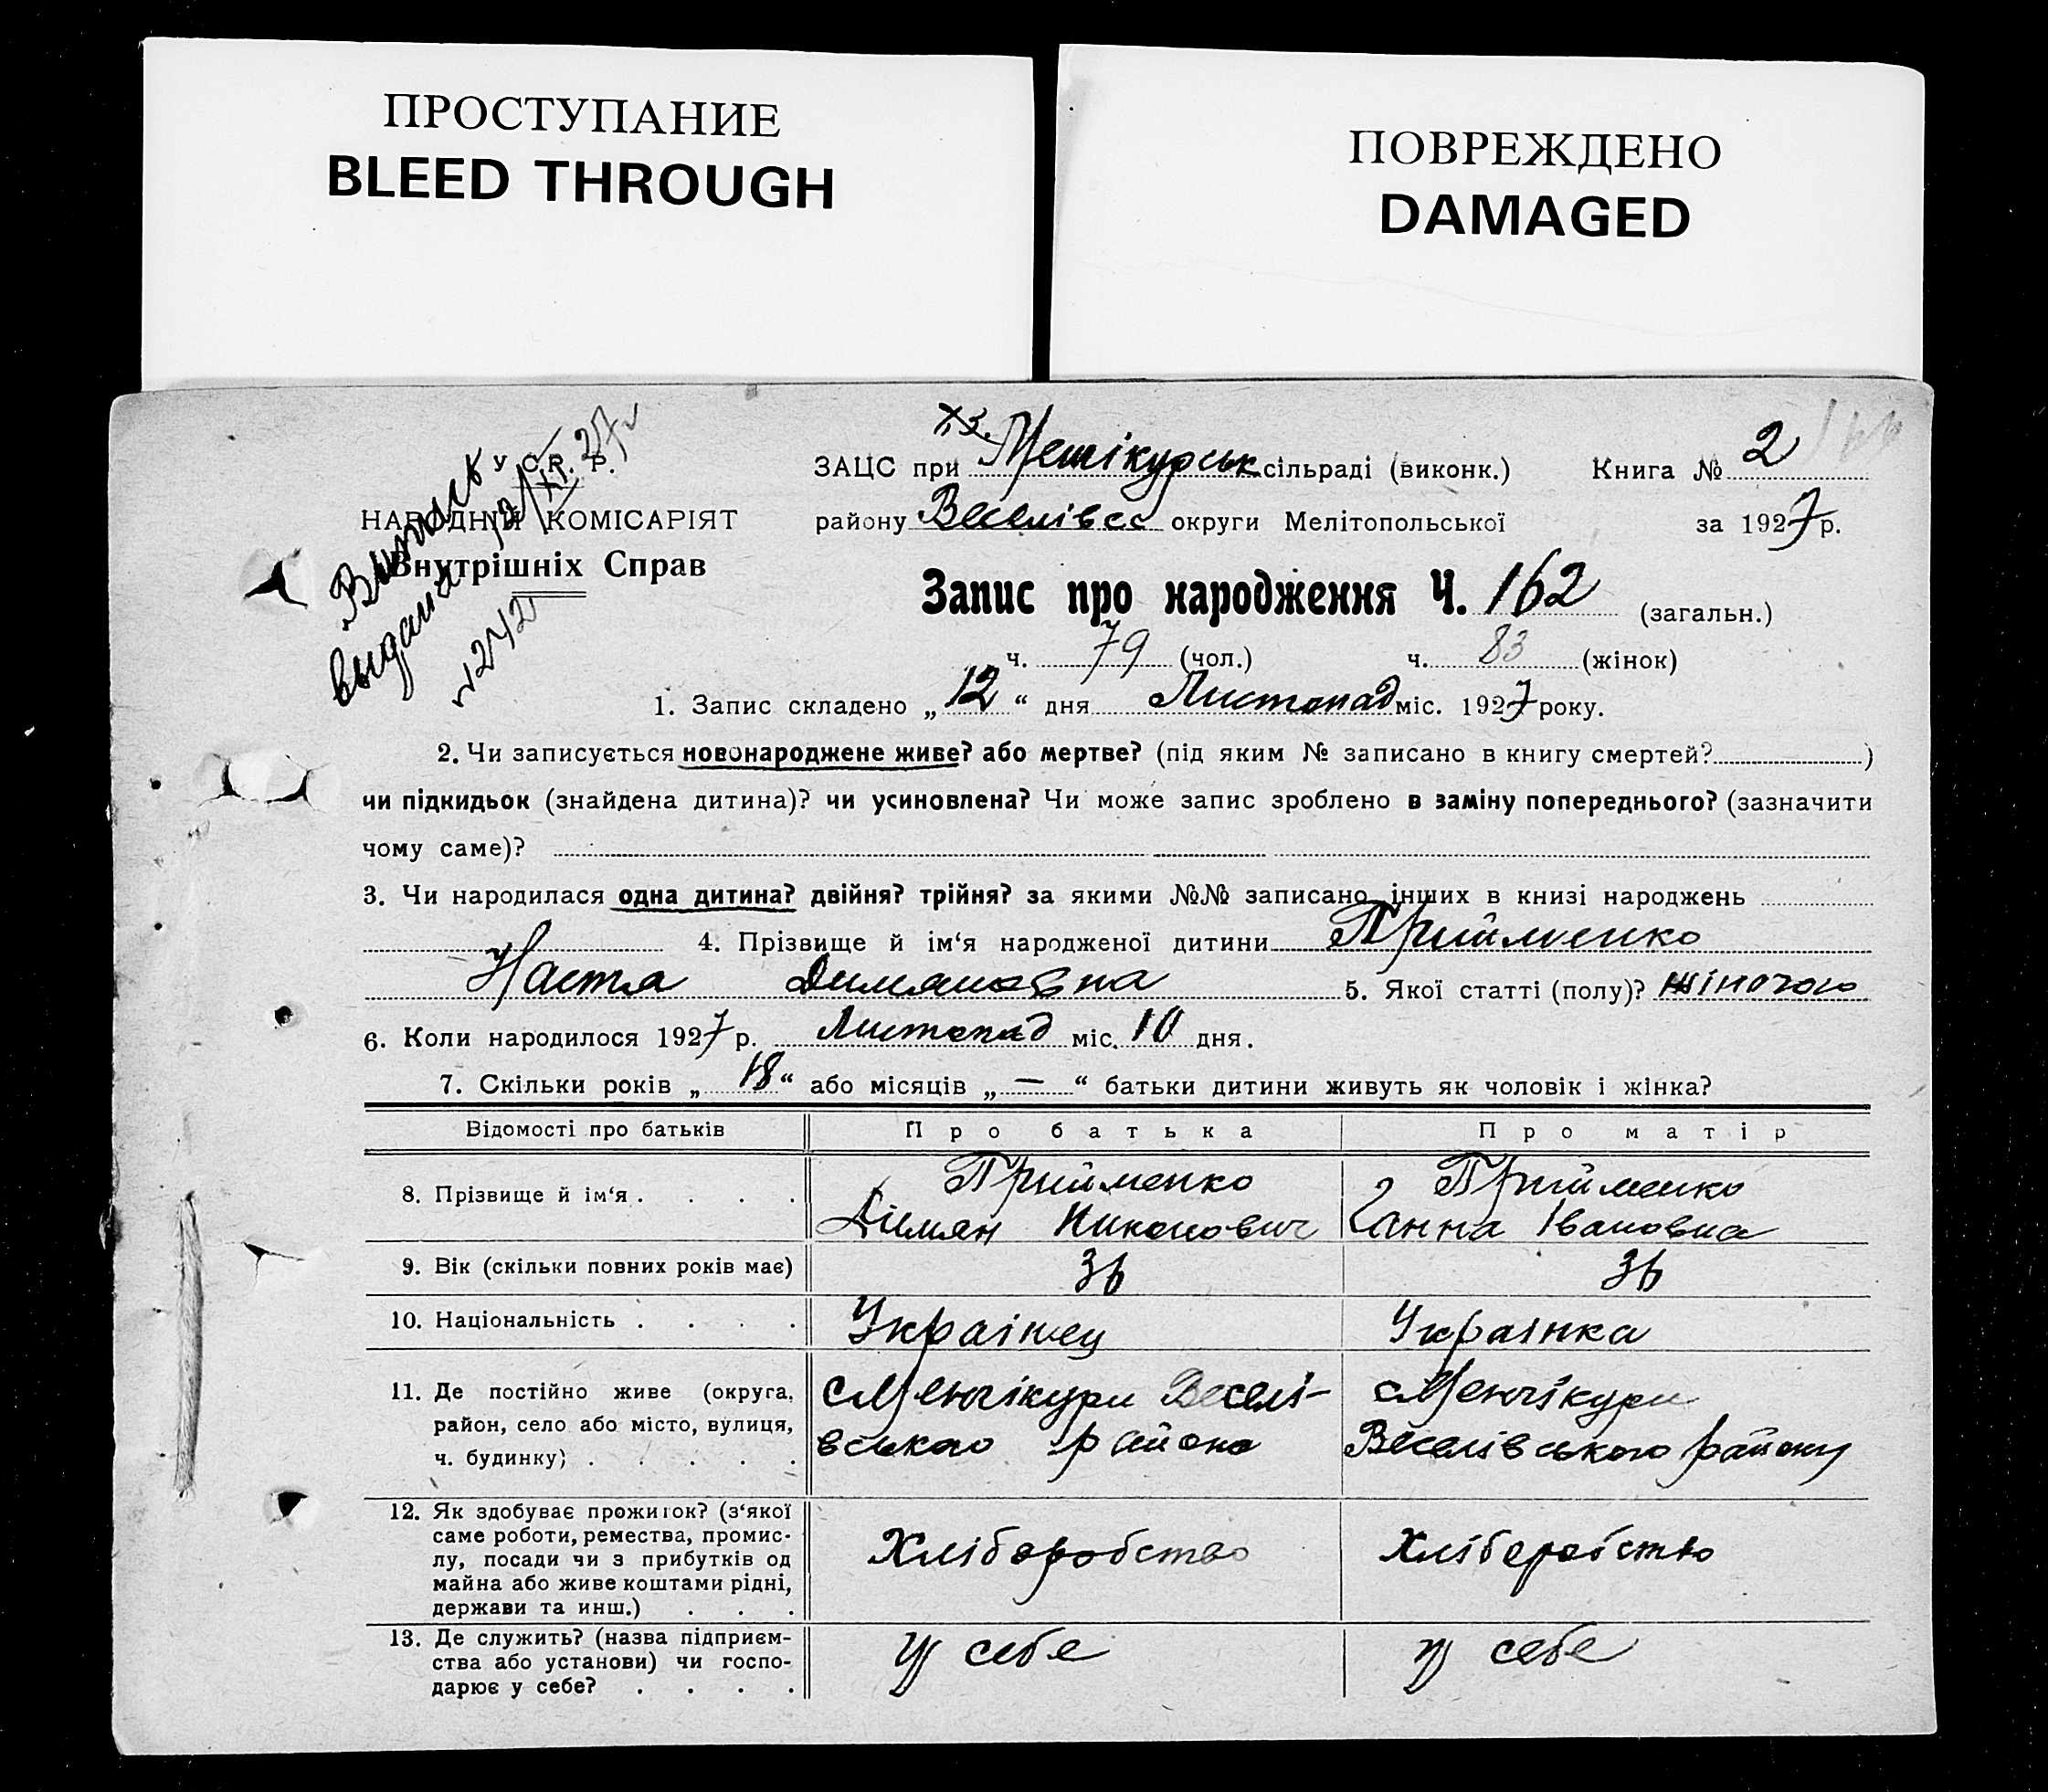 ПРОСТУПАНИЕ
BLEED THROUGH
ПОВРЕЖДЕНО
DAMAGED
У. С. Р. Р.
НАРОДНІЙ КОМІСАРІЯТ
Внутрішніх Справ
Выпись
выдана
12/XI 27
№ 242
ЗАЦС при сільраді (виконк.) Книга № 2
району Веселівсь округи Мелітопольської за 1927 р.
Запис про народження Ч. 162 (загальн.)
ч. 79 (чол.) ч. 83 (жінок)
1. Запис складено „12“ дня Листопад міс. 1927 року.
2. Чи записується новонароджене живе? або мертве? (під яким № записано в книгу смертей? )
чи підкидьок (знайдена дитина)? чи усиновлена? Чи може запис зроблено в заміну попереднього? (зазначити
чому саме)?
3. Чи народилася одна дитина? двійня? трійня? за якими №№ записано інших в книзі народжень
4. Прізвище й ім‘я народженої дитини Прийменко
Настя Димяновна 5. Якої статті (полу)? жіночого
6. Коли народилося 1927 р. Листопад міс. 10 дня.
7. Скільки років „18“ або місяців „—“ батьки дитини живуть як чоловік і жінка?
Відомості про батьків Про батька Про матір
8. Прізвище й ім‘я . . . . Прийменко Прийменко
Дімян Никонович Ганна Івановна
9. Вік (скільки повних років має) 36 36
10. Національність . . . . Украінец Украінка
11. Де постійно живе (округа, с Менчікури Веселі- с Менчікури
район, село або місто, вулиця, вського району Веселівського району
ч. будинку) . . . . .
12. Як здобуває прожиток? (з‘якої
саме роботи, ремества, промис-
лу, посади чи з прибутків од Хліборобство Хліборобство
майна або живе коштами рідні,
держави та инш.) . . .
13. Де служить? (назва підприєм- У себе у себе
ства або установи) чи госпо-
дарює у себе? . . . .